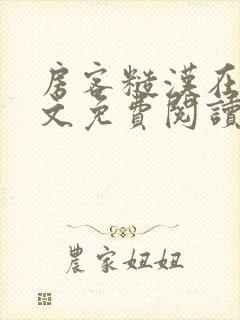 房客糙漢在
文免費閱讀
農家妞妞